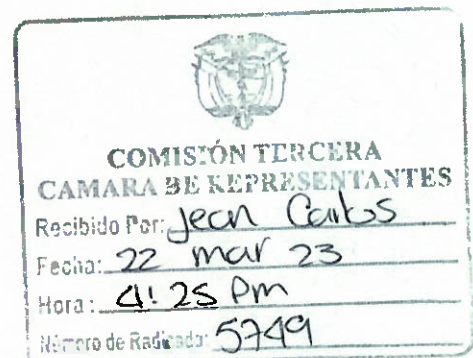 COMISIÓN TERCERA
CAMARA DE REPRESENTANTES
Recibido Por: Jean Carlos
Fecha: 22 mar 23
Hora: 4:25 pm
Número de Radicado: 5749